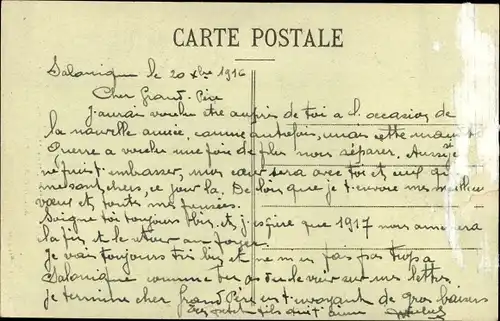 CARTE POSTALE
Salonique le 20 Xbre 1916
Cher Grand-Père
J'aurai voulu être auprès de toi a l'occasion de
la nouvelle année, comme autrefois, mais cette
Guerre a voulu une fois de plus nous séparer. Aussi si
ne puis t'embrasser, mon cœur sera avec toi et ceux qui
me sont chers, ce jour là. De loin que je t'envoie mes meilleurs
vœux et toutes mes pensées.
Soigne toi toujours bien, et j'espère que 1917 nous amènera
la fin et le retour au foyer.
Je vais toujours très bien et ne m'en fais pas trop a
Salonique comme tu as du le voir sur mes lettres.
Je termine cher Grand Père en t'envoyant de gros baisers
Ton petit fils qui t'aime